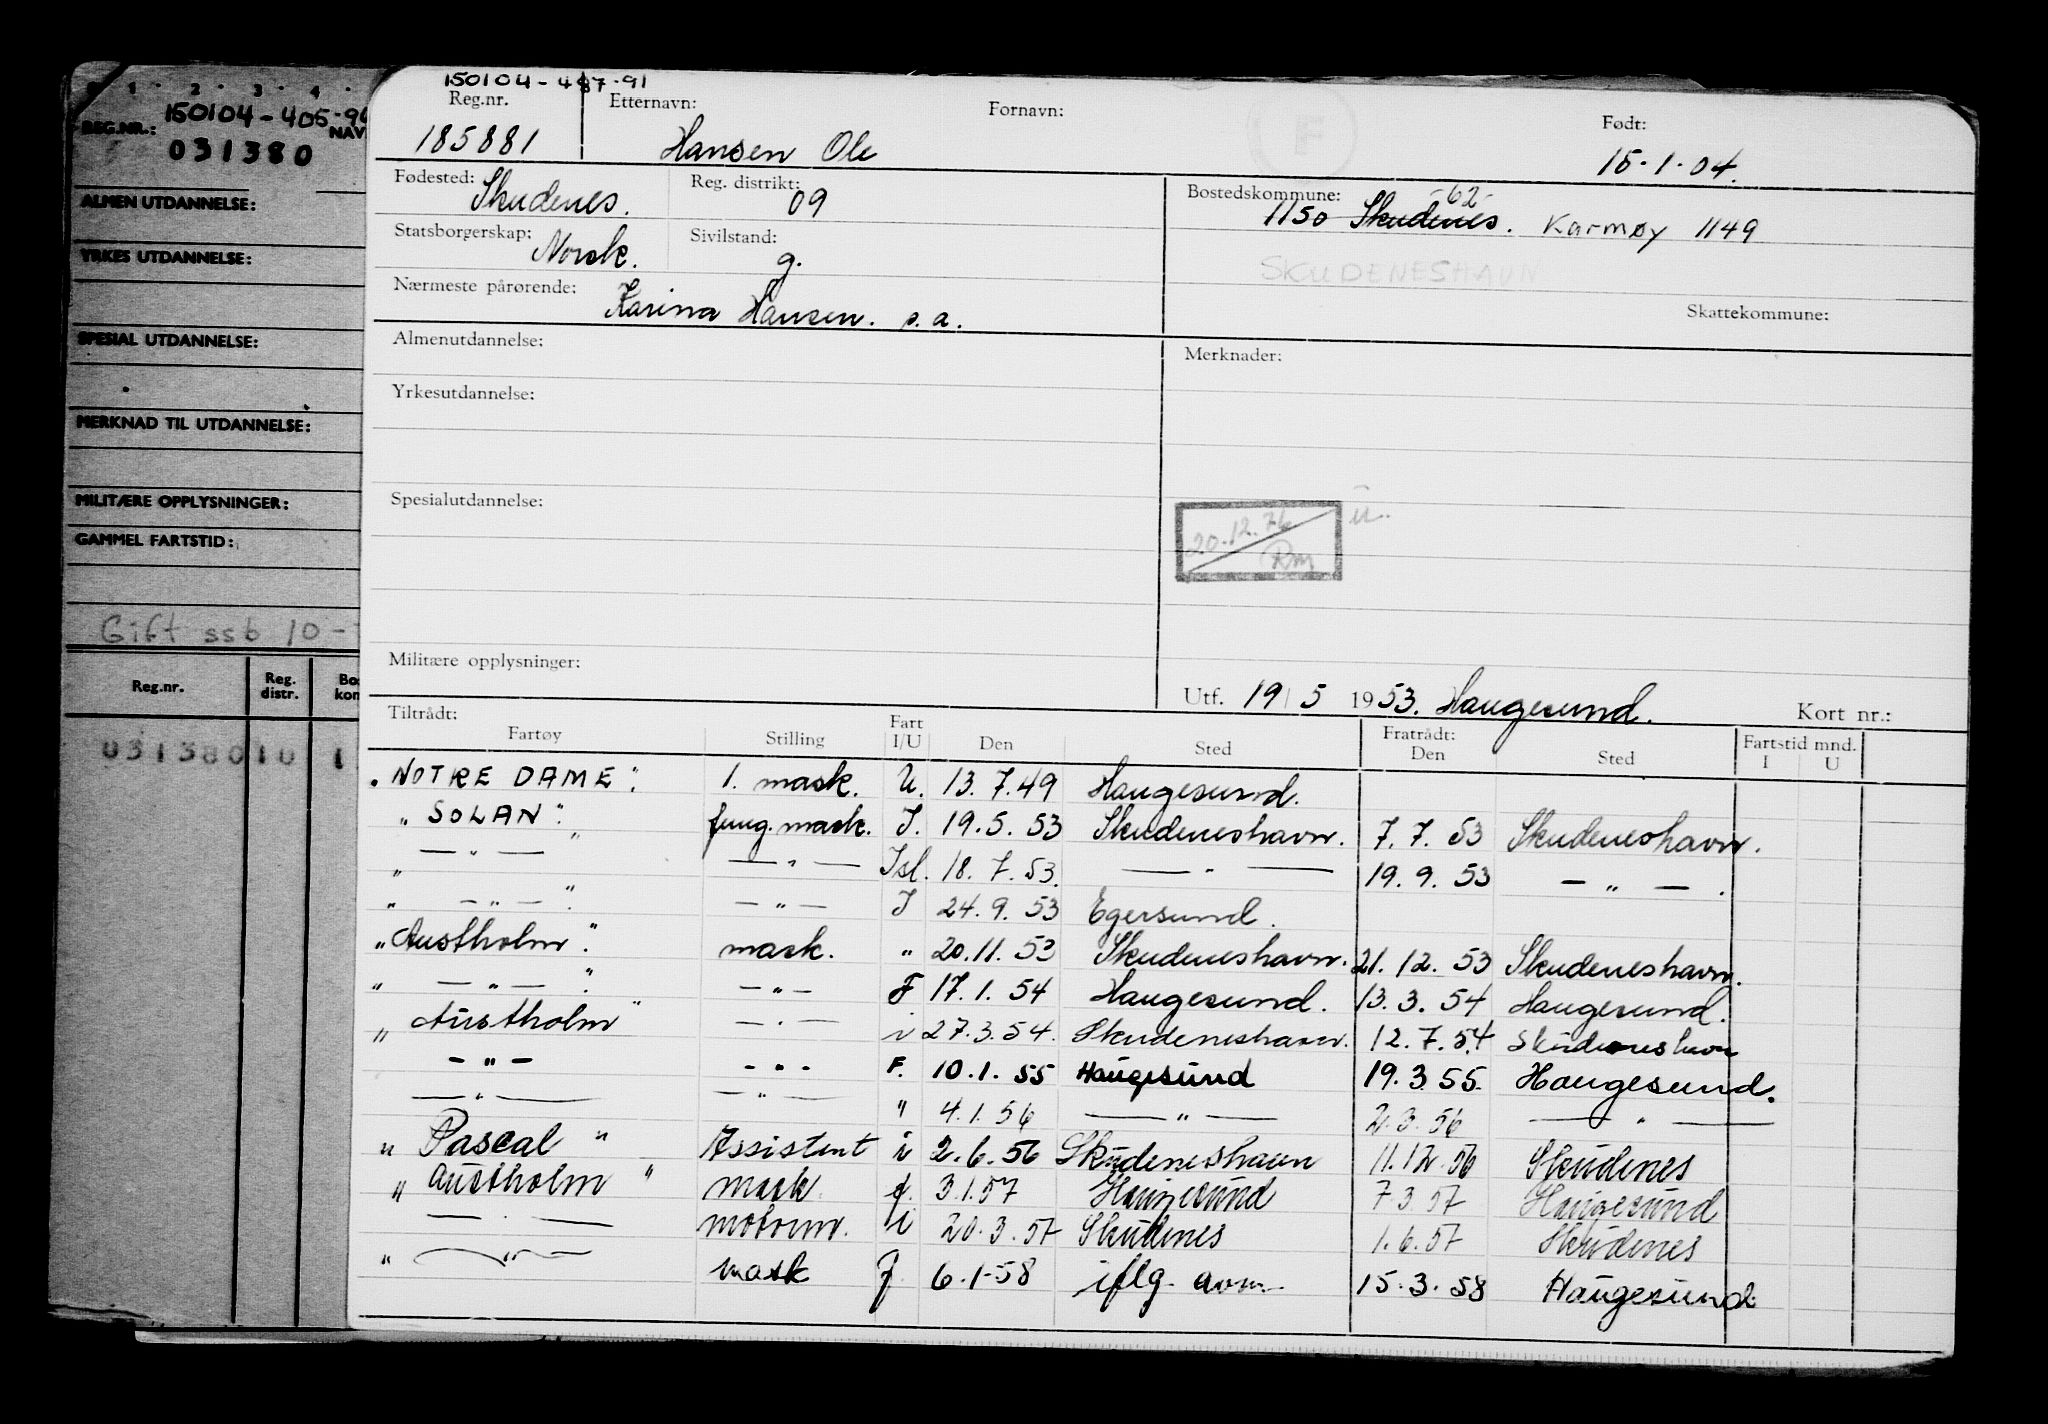 0 · 1 · 2 · 3 · 4 ·
REG.NR.: 150104-405-9 NAV
031380
ALMEN UTDANNELSE:
YRKES UTDANNELSE:
SPESIAL UTDANNELSE:
MERKNAD TIL UTDANNELSE:
MILITÆRE OPPLYSNINGER:
GAMMEL FARTSTID:
Gift ssb 10-
Reg.nr. Reg. distr. Bo kom
031380 10 1
150104-487-91
Reg.nr. Etternavn: Fornavn: Født:
185881 Hansen Ole 15-1-04.
F
Fødested: Skudenes. Reg. distrikt: 09 Bostedskommune: -62-
1150 Skudenes. Karmøy 1149
Statsborgerskap: Norsk. Sivilstand: g.
SKUDENESHAVN
Nærmeste pårørende: Karina Hansen. s.a. Skattekommune:
Almenutdannelse: Merknader:
Yrkesutdannelse:
Spesialutdannelse:
20.12.76 Rm ū.
Militære opplysninger:
Utf. 19/5 1953. Haugesund. Kort nr.:
Tiltrådt: Fartøy Stilling Fart I/U Den Sted Fratrådt: Den Sted Fartstid mnd. I U
"NOTRE DAME". 1. mask. U. 13.7.49 Haugesund.
"SOLAN". fung. mask. I. 19.5.53 Skudeneshavn. 7.7.53 Skudeneshavn.
" — " — " — " — Isl. 18.7.53. — " — 19.9.53 — " — .
" — " — ". — " — I 24.9.53 Egersund.
"Austholm". mask. " 20.11.53 Skudeneshavn. 21.12.53 Skudeneshavn.
" — " — ". — " — F 17.1.54 Haugesund. 13.3.54 Haugesund.
"Austholm" — " — i 27.3.54. Skudeneshavn. 12.7.54 Skudeneshavn
— " — - " - F. 10.1.55 Haugesund 19.3.55. Haugesund.
— " — — " — " 4.1.56 — " — 2.3.56 — " —
"Pascal" Assistent i 2.6.56 Skudeneshavn 11.12.56 Skudenes
"Austholm" mask. f. 3.1.57 Haugesund 7.3.57 Haugesund
— " — motorm. i 20.3.57 Skudenes 1.6.57 Skudenes
" — " — mask f. 6.1-58 iflg. avm. 15.3.58 Haugesund